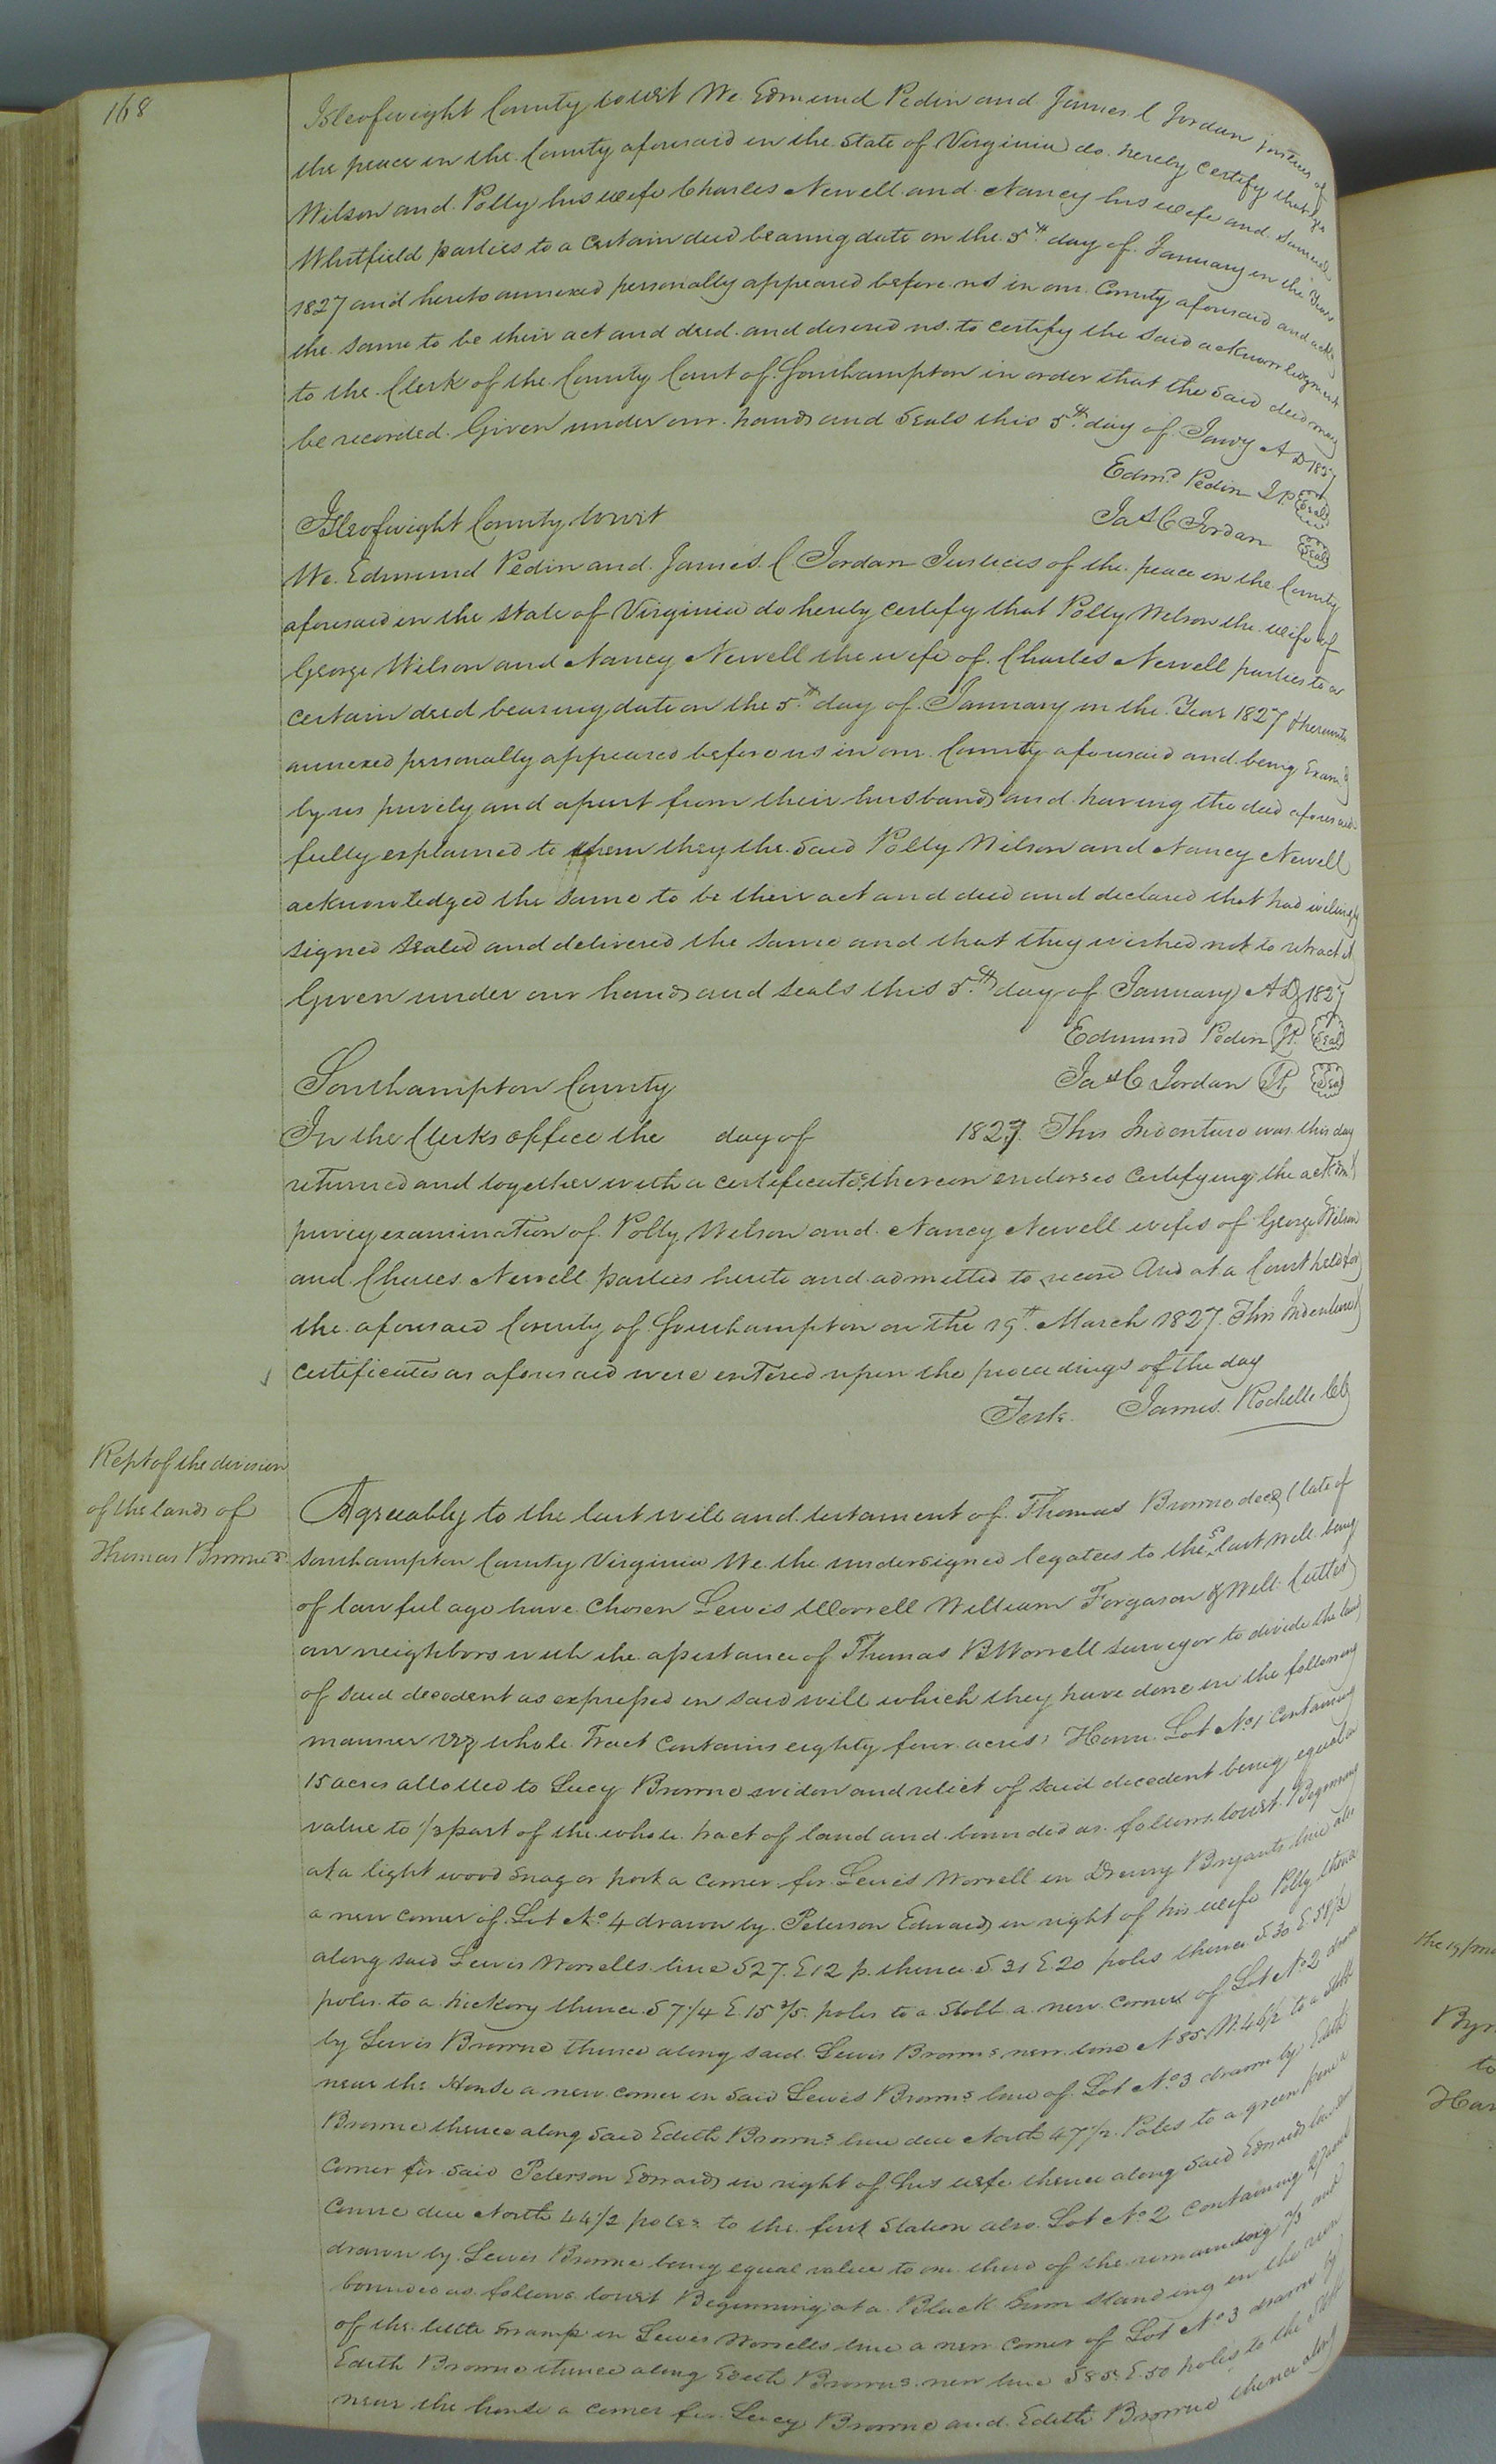 168
Isleofwight County towit We Edmund Pedin and James C Jordan justices of
the peace in the County aforesaid in the State of Virginia do hereby certify that
Wilson and Polly his wife Charles Newell and Nancy his wife and Samuel
Whitfield parties to a certain deed bearing date on the 5th day of January in the Year
1827 and hereto annexed personally appeared before us in our County aforesaid and
the same to be their act and deed and desired us to certify the said acknowledgment
to the Clerk of the County Court of Southampton in order that the said deed may
be recorded Given under our hands and Seals this 5th day of Jany A D 1827
Edmd Pedin J.P. Seal
Jas C Jordan Seal
Isleofwight County towit
We Edmund Pedin and James C Jordan Justices of the peace in the County
aforesaid in the State of Virginia do hereby certify that Polly Wilson the wife of
George Wilson and Nancy Newell the wife of Charles Newell parties to a
certain deed bearing date on the 5th day of January in the Year 1827 hereunto
annexed personally appeared before us in our County aforesaid and being Examd
by us privily and apart from their husbands and having the deed aforesaid
fully explained to them they the said Polly Wilson and Nancy Newell
acknowledged the same to be their act and deed and declared that had willingly
signed sealed and delivered the same and that they wished not to retract it
Given under our hands and seals this 5th day of January A D 1827
Edmund Pedin JP Seal
Jas C Jordan JP Seal
Southampton County
In the Clerks office the day of 1827. This Indenture was this day
returned and together with a certificates thereon endorsed certifying the
privy examination of Polly Wilson and Nancy Newell wifes of George Wilson
and Charles Newell parties hereto and admitted to record And at a Court held for
the aforesaid County of Southampton on the 19th March 1827. This Indenture &
certificates as aforesaid were entered upon the proceedings of the day
Teste James Rochelle CC
Rept of the division
of the lands of
Thomas Browne
Agreeably to the last will and testament of Thomas Browne decd (late of
Southampton County Virginia We the undersigned legatees to the sd last Will being
of lawful age have chosen Lewis Worrell William Forgason & Will Cutler
our neighbors with the assistance of Thomas B Worrell surveyor to divide the land
of said decedent as expressed in said will which they have done in the following
manner Viz whole Tract contains eighty four acres Home Lot No 1 containing
15 acres allotted to Lucy Browne widow and relict of said decedent being equal in
value to 1/3 part of the whole tract of land and bounded as follows towit Beginning
at a light wood snag or post a corner for Lewis Worrell in Drewry Bryants line also
a new corner of Lot No 4 drawn by Peterson Edwards in right of his wife Polly thence
along said Lewis Worrells line S 27 E 12 p. thence S 31 E 20 poles thence S 30 E 58 1/2
poles to a hickory thence S 7 1/4 E 15 3/5 poles to a Stobb a new corner of Lot No 2 drawn
by Lewis Browne thence along said Lewis Browns new line N 85 W. 46 1/2 to a stobb
near the House a new corner in said Lewis Browns line of Lot No 3 drawn by Edith
Browne thence along said Edith Browns line due North 47 1/2 Poles to a green pine a
corner for said Peterson Edwards in right of his wife thence along said Edwards line
due North 44 1/2 poles to the first Station also Lot No 2 containing
drawn by Lewis Browne being equal value to one third of the remaining 2/3 and
bounded as follows towit Beginning at a Black Gum standing in the
of the little swamp in Lewis Worrells line a new corner of Lot No 3 drawn by
Edith Browne thence along Edith Browns new line S 85 E 50 poles to the Stobb
near the house a corner for Lucy Browne and Edith Browne thence along